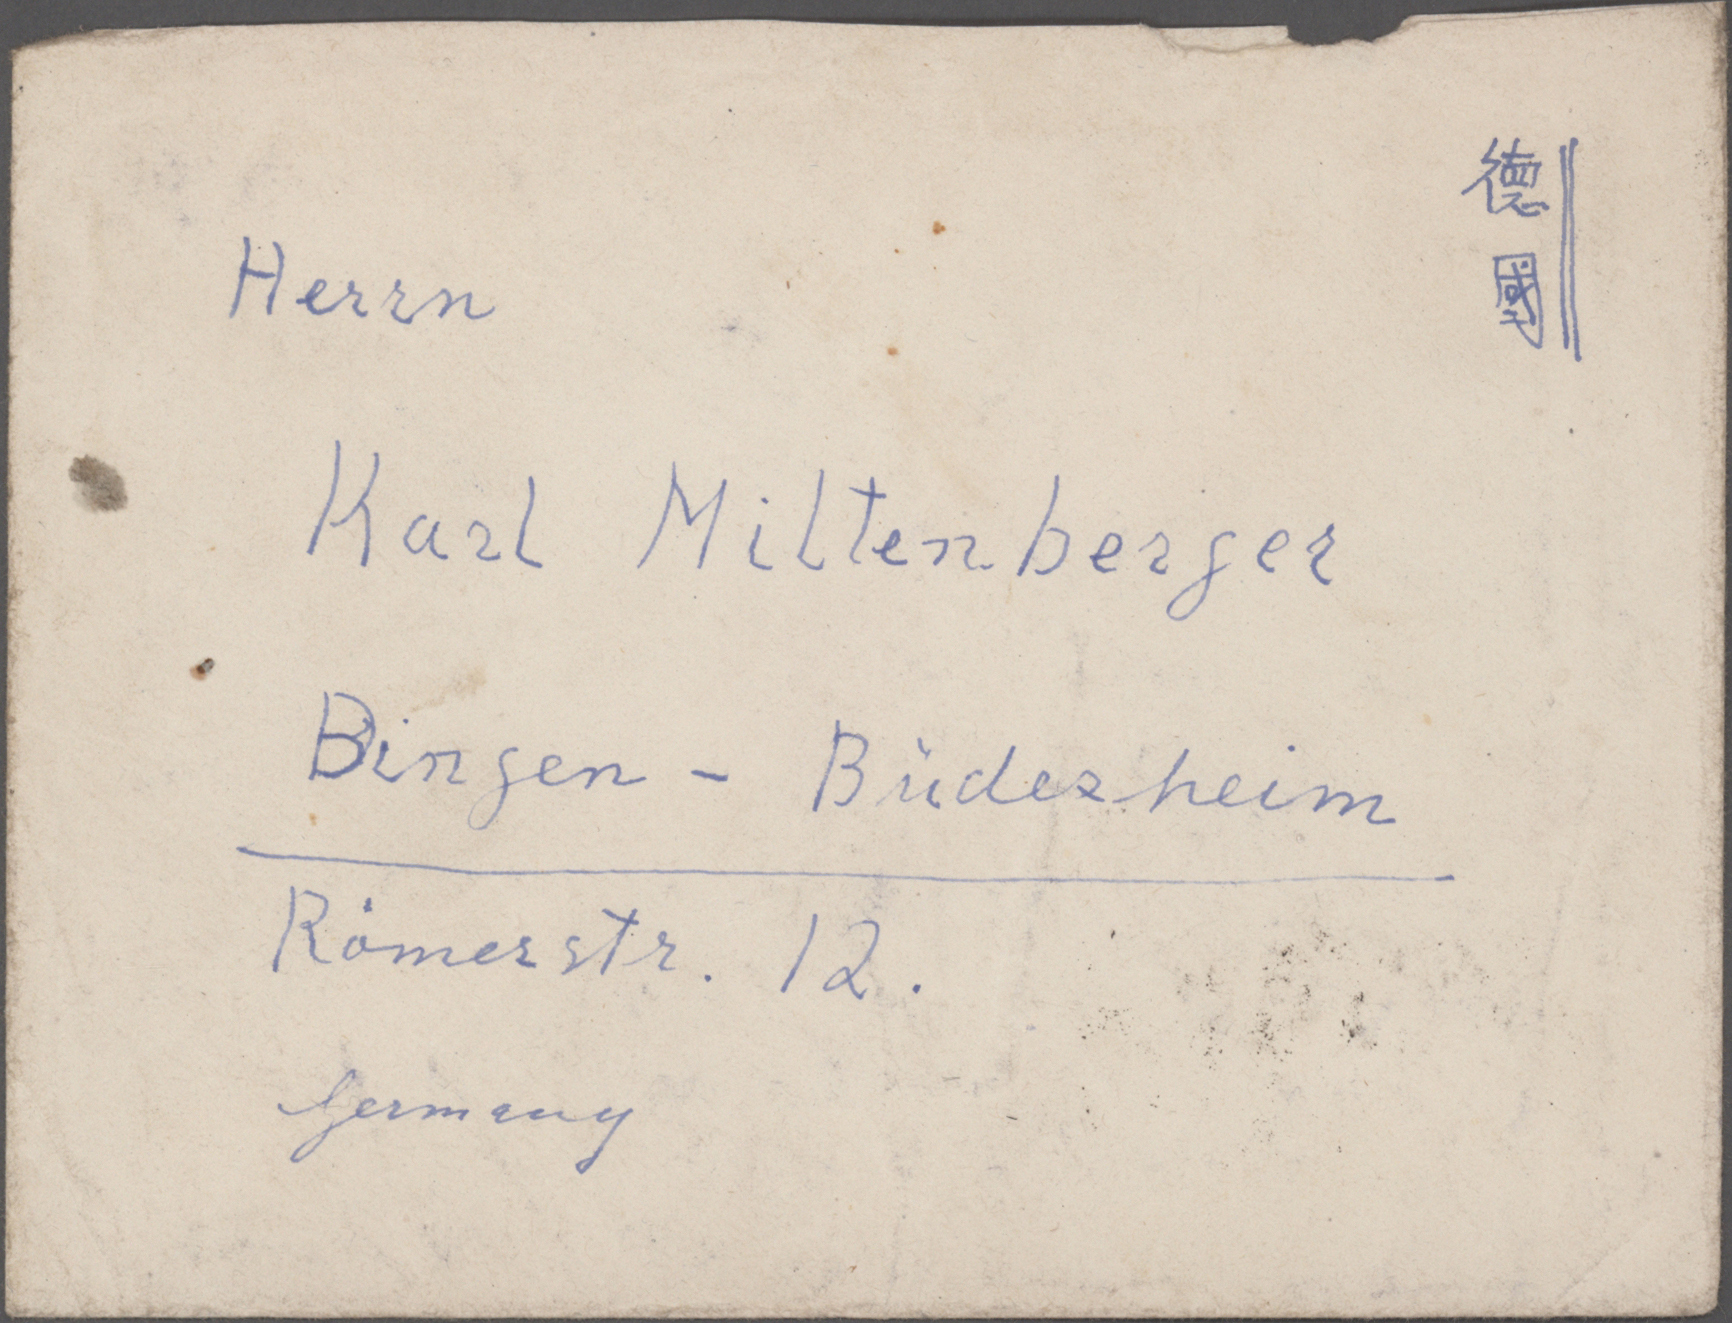 德國
Herrn
Karl Miltenberger
Bingen - Büdesheim
Römerstr. 12.
Germany